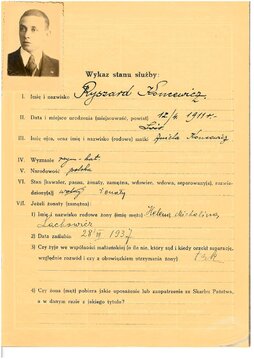 Wykaz stanu służby:
I. Imię i nazwisko Ryszard Koncewicz
II. Data i miejsce urodzenia (miejscowość, powiat) 12/4 1911 r.
Lwów
III. Imię ojca, oraz imię i nazwisko (rodowe) matki Koncewicz
IV. Wyznanie rzym-kat.
V. Narodowość polska
VI. Stan (kawaler, panna, żonaty, zamężna, wdowiec, wdowa, separowany(a), rozwie-
dziony(a), wolny) żonaty
VII. Jeżeli żonaty (zamężna):
1) Imię i nazwisko rodowe żony (imię męża) Helena Michalina,
Lachowicz
2) Data zaślubin 28 1937
3) Czy żyje we wspólności małżeńskiej (o ile nie, który sąd i kiedy orzekł separację,
względnie rozwód i czy z obowiązkiem utrzymania żony)
4) Czy żona (mąż) pobiera jakie uposażenie lub zaopatrzenie ze Skarbu Państwa,
a w danym razie z jakiego tytułu?